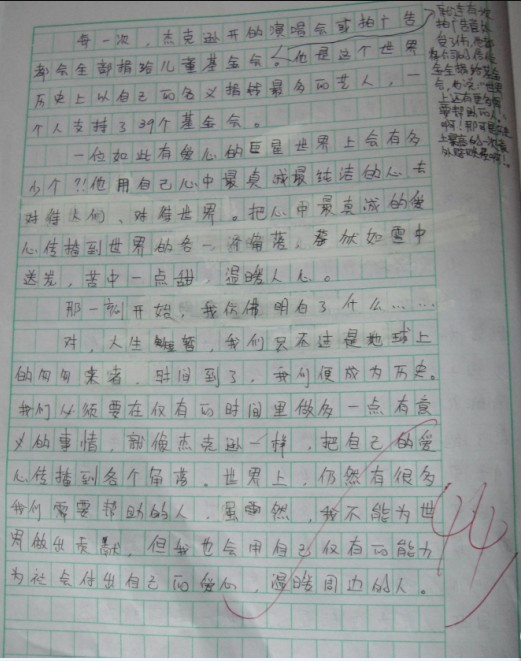 每一次，杰克逊开的演唱会或拍广告
都会全部捐给儿童基金会。他是这个世界
历史上以自己的名义捐献最多的艺人，一
个人支持了39个基金会。
一位如此有爱心的巨星世界上会有多
少个？！他用自己心中最真诚最纯洁的心去
对待人们、对待世界。把心中最真诚的爱
心传播到世界的各一个角落，仿然如雪中
送炭，苦中一点甜，温暖人心。
那一刻开始，我仿佛明白了什么……
对，人生短暂，我们只不过是地球上
的匆匆来者，时间到了，我们便成为历史。
我们必须要在仅有的时间里做多一点有意
义的事情，就像杰克逊一样，把自己的爱
心传播到各个角落。世界上，仍然有很多
我们需要帮助的人，虽然，我不能为世
界做出贡献，但我也会用自己仅有的能力
为社会付出自己的爱心，温暖周边的人。
有次
拍广告意外
受了伤，他都
会，他说："世界
上还有更多需
要帮助的人
啊！
44